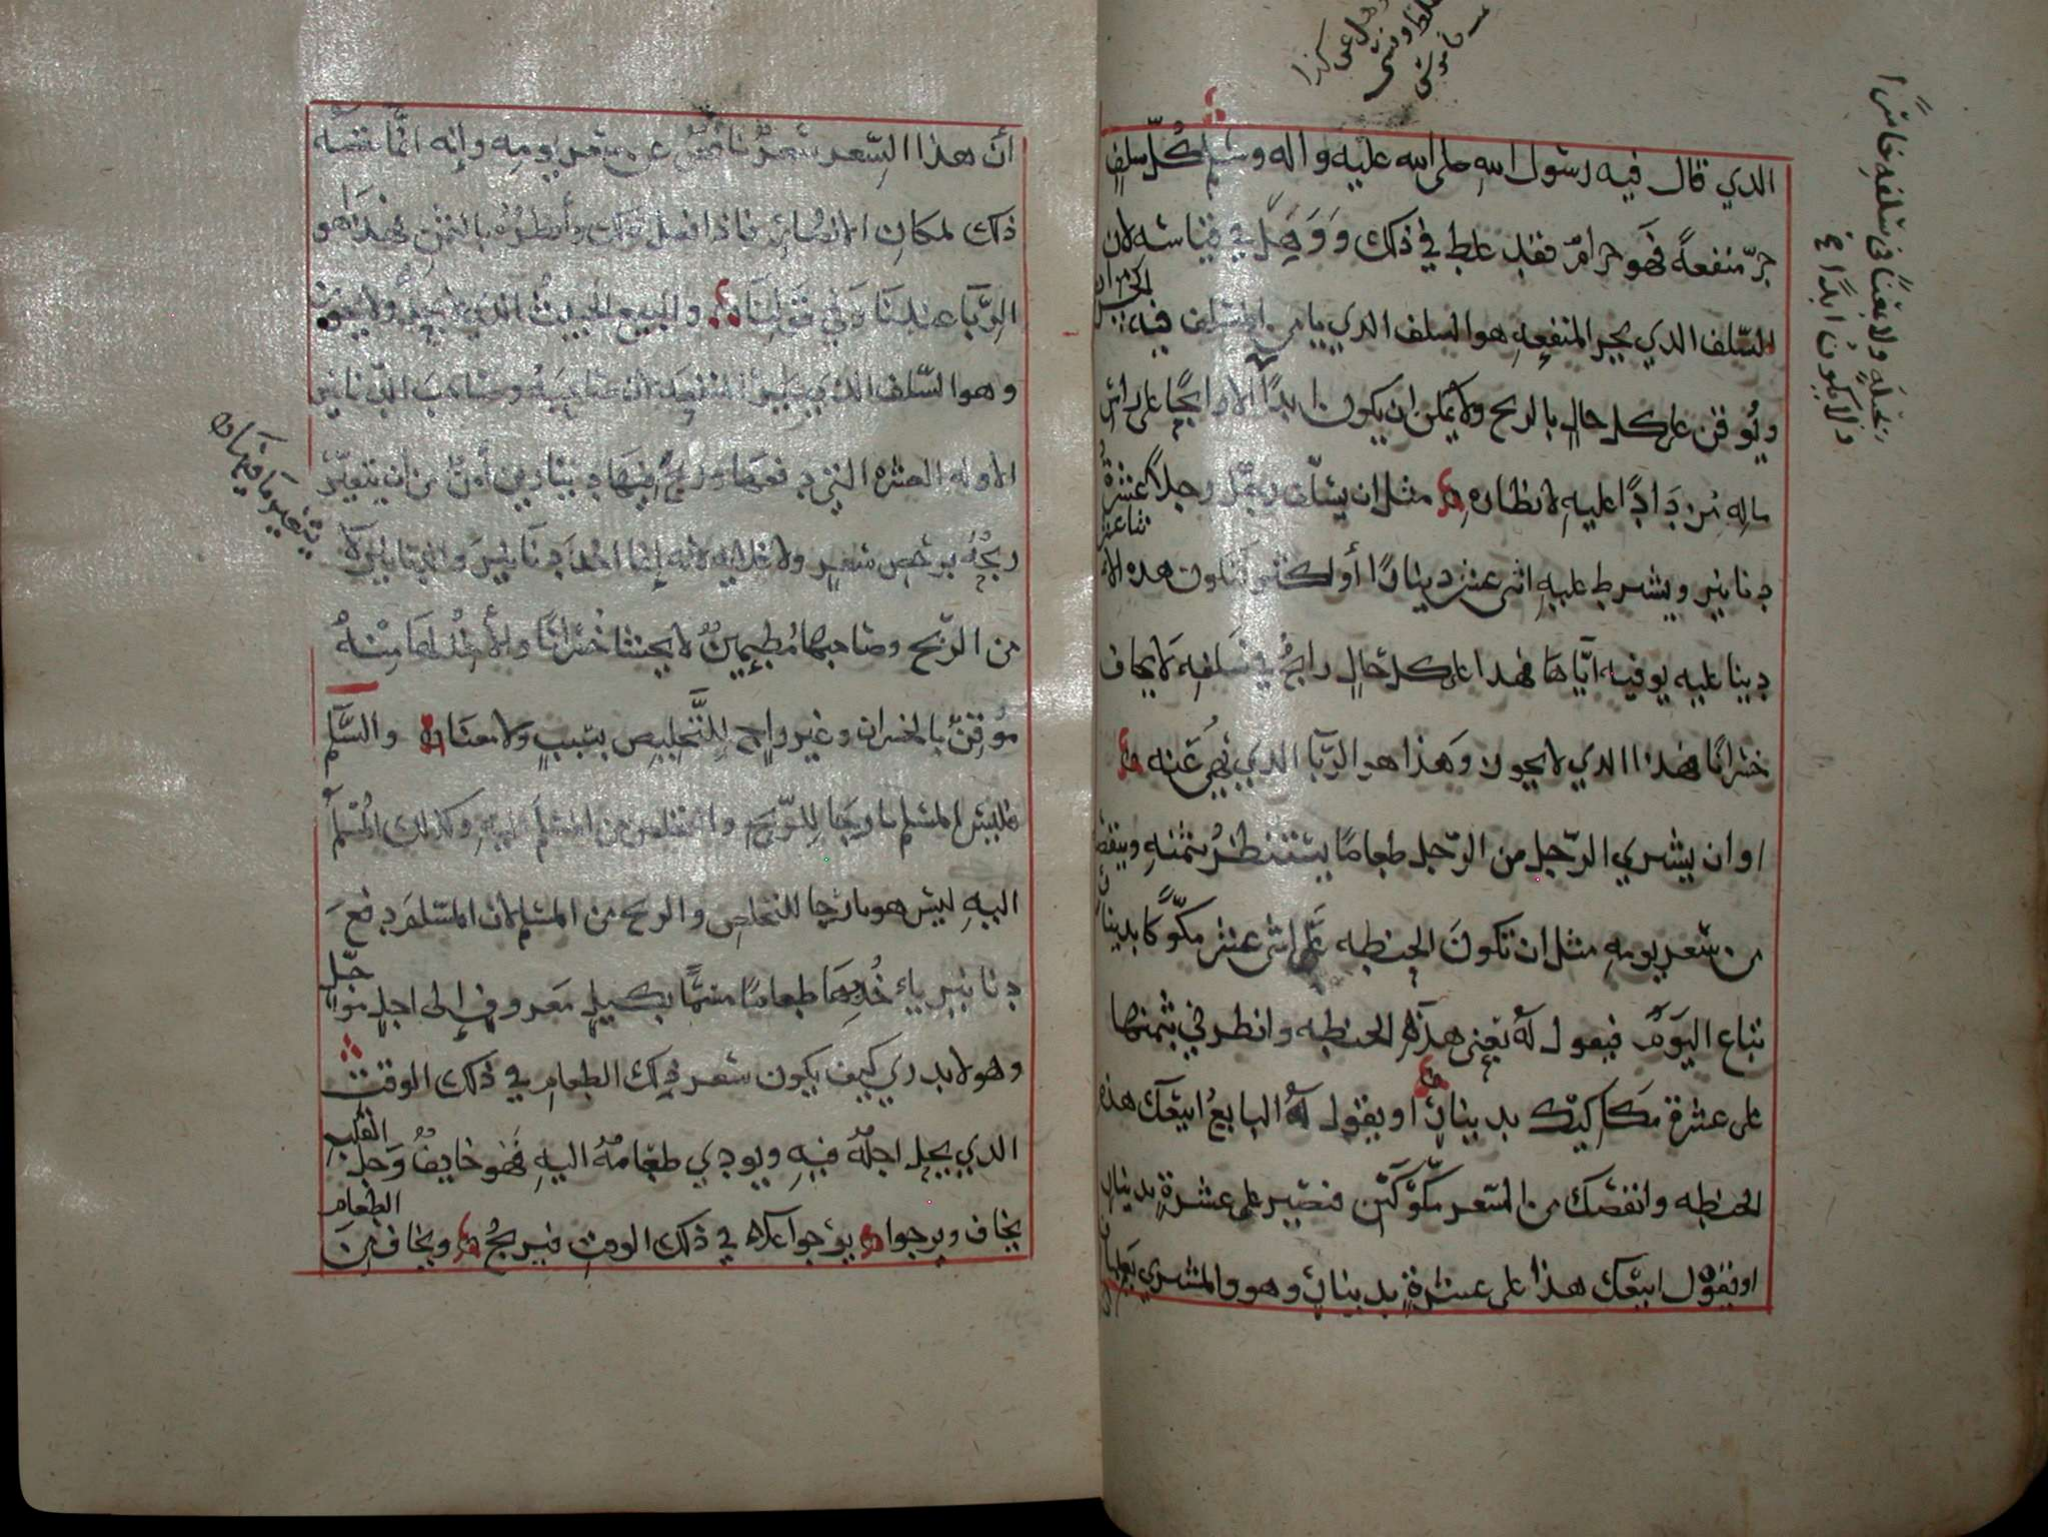 الذي قال فيه رسول الله صلى الله عليه واله وسلم كل سلف
جر منفعة فهو حرام فقد غلط في ذلك ووهل في قياسه لان
السلف الذي يجر المنفعه هو السلف الذي يامن المتسلف فيه الخسران
ويوقن على كل حال بالربح ولا يمكن ان يكون ابدا الا رابحا على راس
ماله مزدادا عليه لانظاره مثل ان يسلف رجل رجلا عشرة
دنانير ويشرط عليه اثنى عشر دينارا أو اكثر فتكون هذه الاثنا عشر
دينا عليه يوفيه اياها فهذا على كل حال رابح في سلفه لا يخاف
خسرانا فهذا الذي لا يجوز وهذا هو الربا الذي نهي عنه
او ان يشري الرجل من الرجل طعاما يستنظر بثمنه وينقصه
من سعر يومه مثل ان تكون الحنطه على اثنى عشر مكوكا بدينار
تباع اليوم فيقول له بعنى هذه الحنطه وانظرني بثمنها
على عشرة مكاكيك بدينار او يقول له البايع ابيعك هذه
الحنطه وانقصك من السعر مكوكين فتصير على عشرة بدينار
او يقول ابيعك هذا على عشرة بدينار وهو والمشري يعلمان
بخله ولا بغنا في سلفه خاسرا
ولا يكون ابدا
أن هذا السعر سعر ناقص عن سعر يومه وإنه انما نقصه
ذلك لمكان الانظار فاذا فعل ذلك وأنظره بالثمن فهذا هو
الربا عندنا وفي قولنا والبيع الخبيث الذي لا يحل ولا يجوز
وهو السلف الذي يجر المنفعه الى صاحبه وصاحب الدنانير
الاوله العشره التي دفعها وربح فيها دينارين أمن من ان يتغير
ربحه برخص سعر ولا غلايه لانه إنما اخذ دنانير
من الربح وصاحبها مطمين لا يخشا خسرانا والأخذ لها منه
موقن بالخسران وغير راج للتخليص بسبب ولا معنا والسلم
فليس المسلم راجيا للربح والمسلم اليه وكذلك المسلم
اليه ليس هو بارجا للتخلص والربح من المسلم لان المسلم دفع
دنانير ياخذ بها طعاما مسما بكيل معروف إلى اجل مؤجل
وهو لا يدري كيف يكون سعر ذلك الطعام في ذلك الوقت
الذي يحل اجله فيه ويودي طعامه اليه فهو خايف وجل القلب
يخاف ويرجوا يرجوا غلاه في ذلك الوقت فيربح ويخاف من الطعام